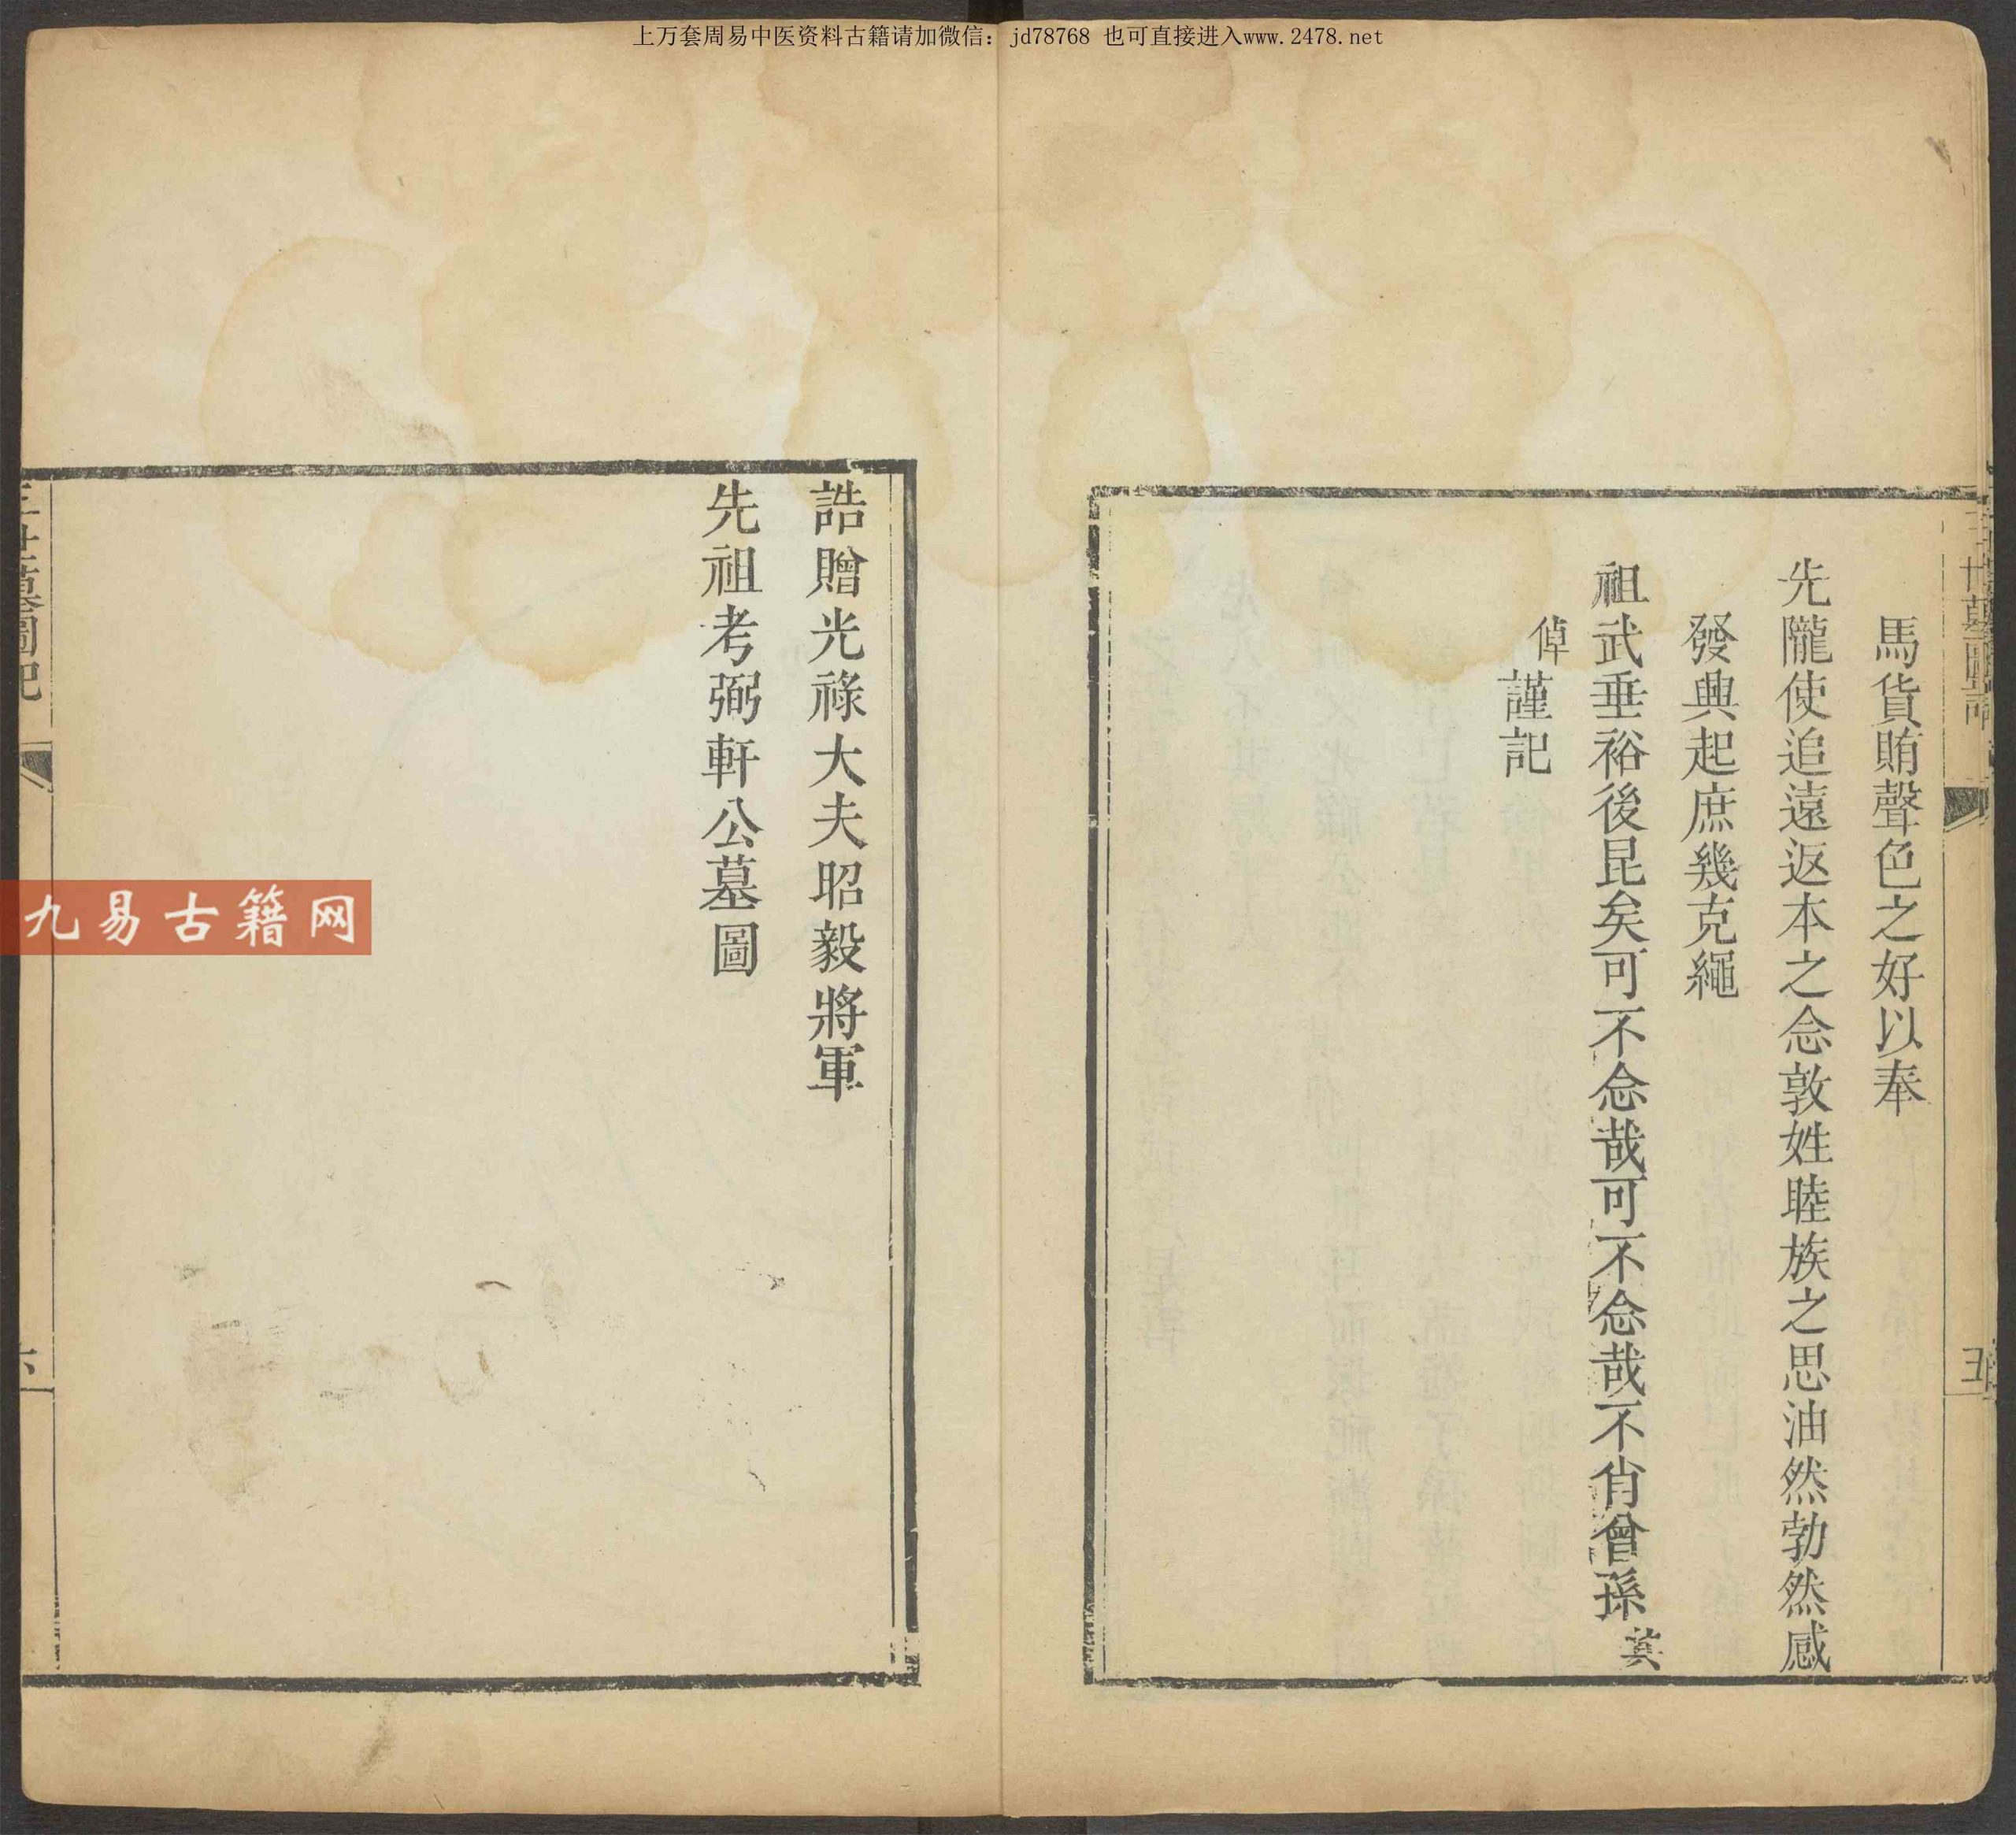 上万套周易中医资料古籍请加微信：jd78768 也可直接进入www.2478.net
馬貨賄聲色之好以奉
先隴使追遠返本之念敦姓睦族之思油然勃然感
發興起庶幾克繩
祖武垂裕後昆矣可不念哉可不念哉不肖曾孫
倬謹記
三世墓圖記
五
誥贈光祿大夫昭毅將軍
先祖考弼軒公墓圖
三世墓圖記
六
九易古籍网